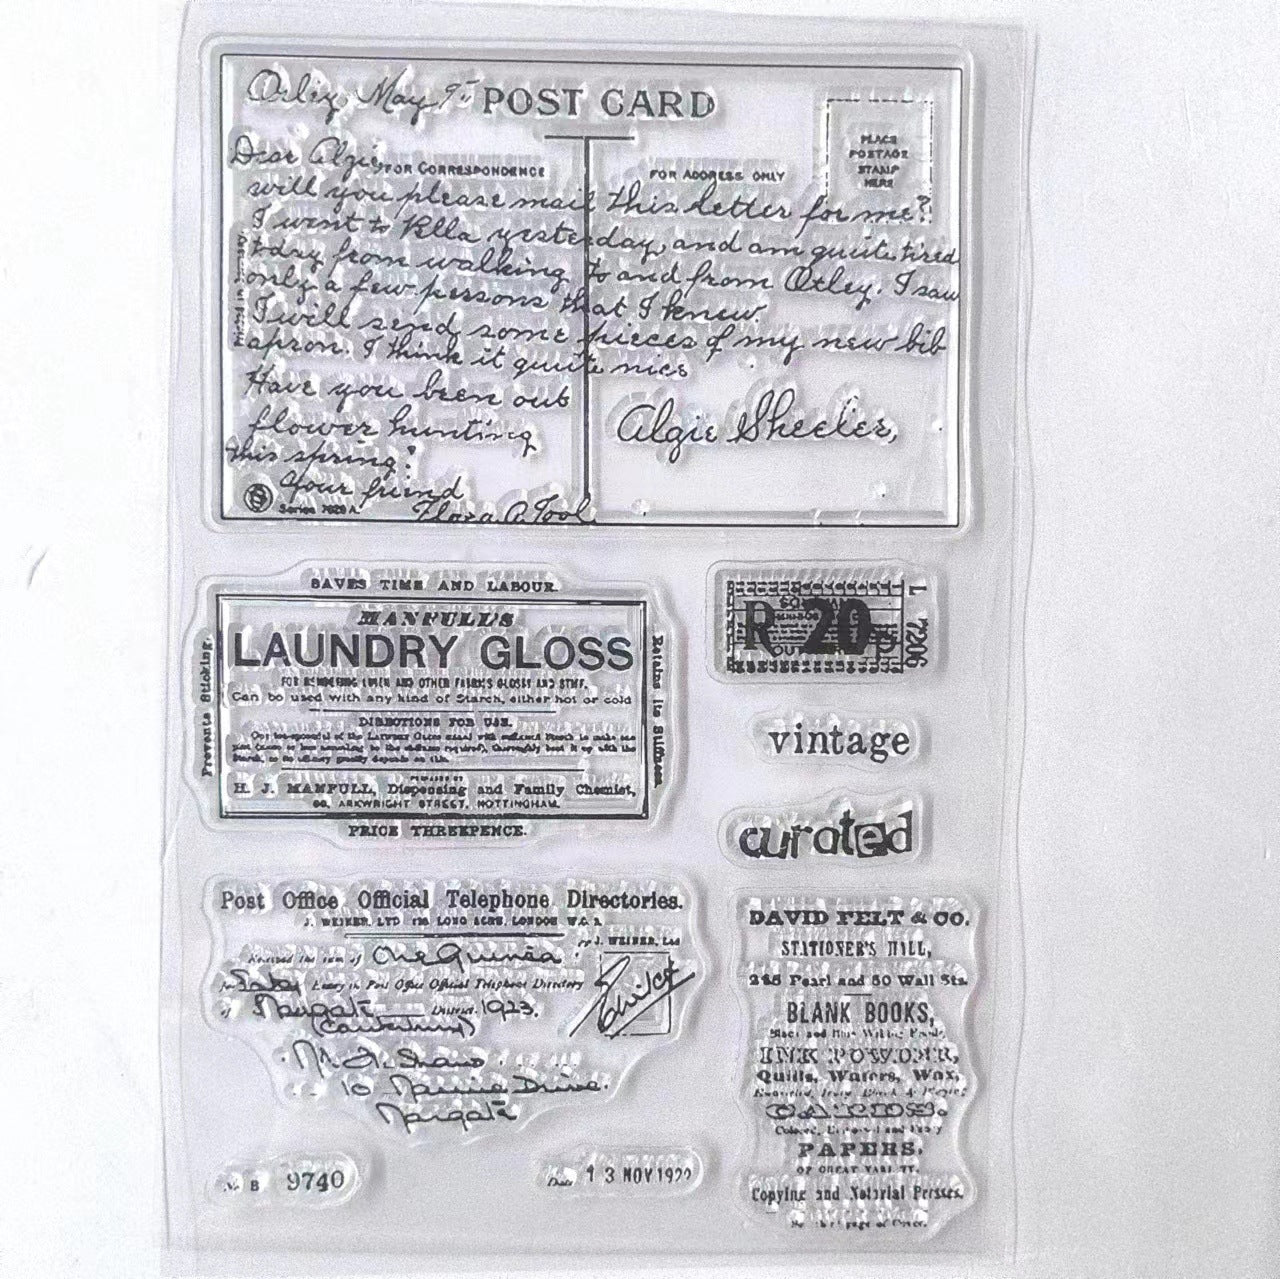 Oxley, May 9
POST CARD
PLACE
POSTAGE
STAMP
HERE
Dear Algie,
FOR CORRESPONDENCE
FOR ADDRESS ONLY
will you please mail this letter for me?
I went to Ella yesterday, and am quite tired
today from walking to and from Oxley. I saw
only a few persons that I knew.
I will send some pieces of my new bib
apron. I think it quite nice
Have you been out
flower hunting
this spring?
Your friend
Flora A. Tool
Series 7629 A.
Algie Sheeler,
SAVES TIME AND LABOUR.
Prevents Sticking.
MANFULL'S
LAUNDRY GLOSS
FOR RENDERING LINEN AND OTHER FABRICS GLOSSY AND STIFF.
Can be used with any kind of Starch, either hot or cold
DIRECTIONS FOR USE.
PREPARED BY
H. J. MANFULL, Dispensing and Family Chemist,
ARKWRIGHT STREET, NOTTINGHAM.
Retains its Stiffness
PRICE THREEPENCE.
R 20
L 7206
vintage
curated
Post Office Official Telephone Directories.
J. WEINER, LTD LONG ACRE, LONDON W.C. 2.
J. WEINER, Ltd
Received the sum of One Guinea
for Entry in Post Office Official Telephone Directory
of Margate District 1923.
(Canterbury)
Mr. Shaw
10 Drive.
Margate
B 9740
Date 13 NOV 192
DAVID FELT & CO.
STATIONER'S HALL,
245 Pearl and 50 Wall Sts.
BLANK BOOKS,
INK POWDER,
Quills, Wafers, Wax,
CARDS.
PAPERS,
OF GREAT VARIETY.
Copying and Notarial Presses.